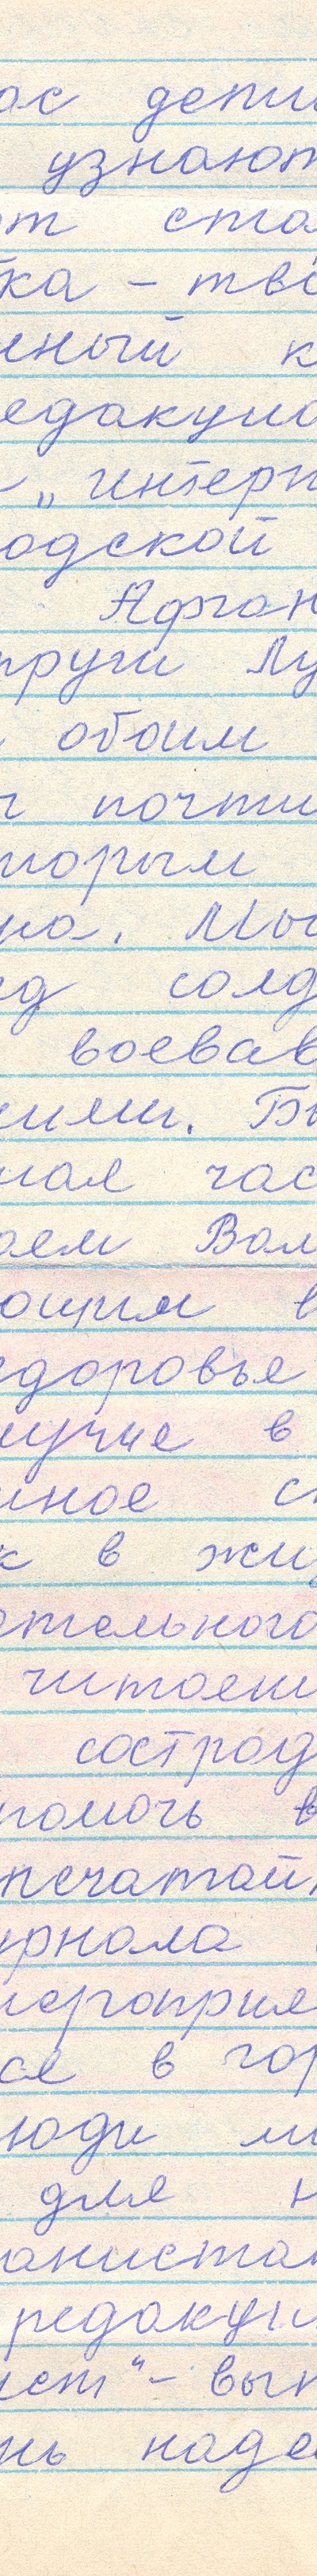 ас дети
узнают
от ста
ка - тво
нный к
едакци
- „интерн
одской
Афган
пруги Лу
обоим
г почти
торым
на. Мы
ед солд
воевав
кими. Бы
ная час
аем Вам
ющим в
здоровье
лучие в
нное сп
к в жиз
ательного
читаем
сострад
помочь в
печатай
урнала
мероприя
ся в гор
люди м
для н
анистан
редакци
ист"- вып
нь наде